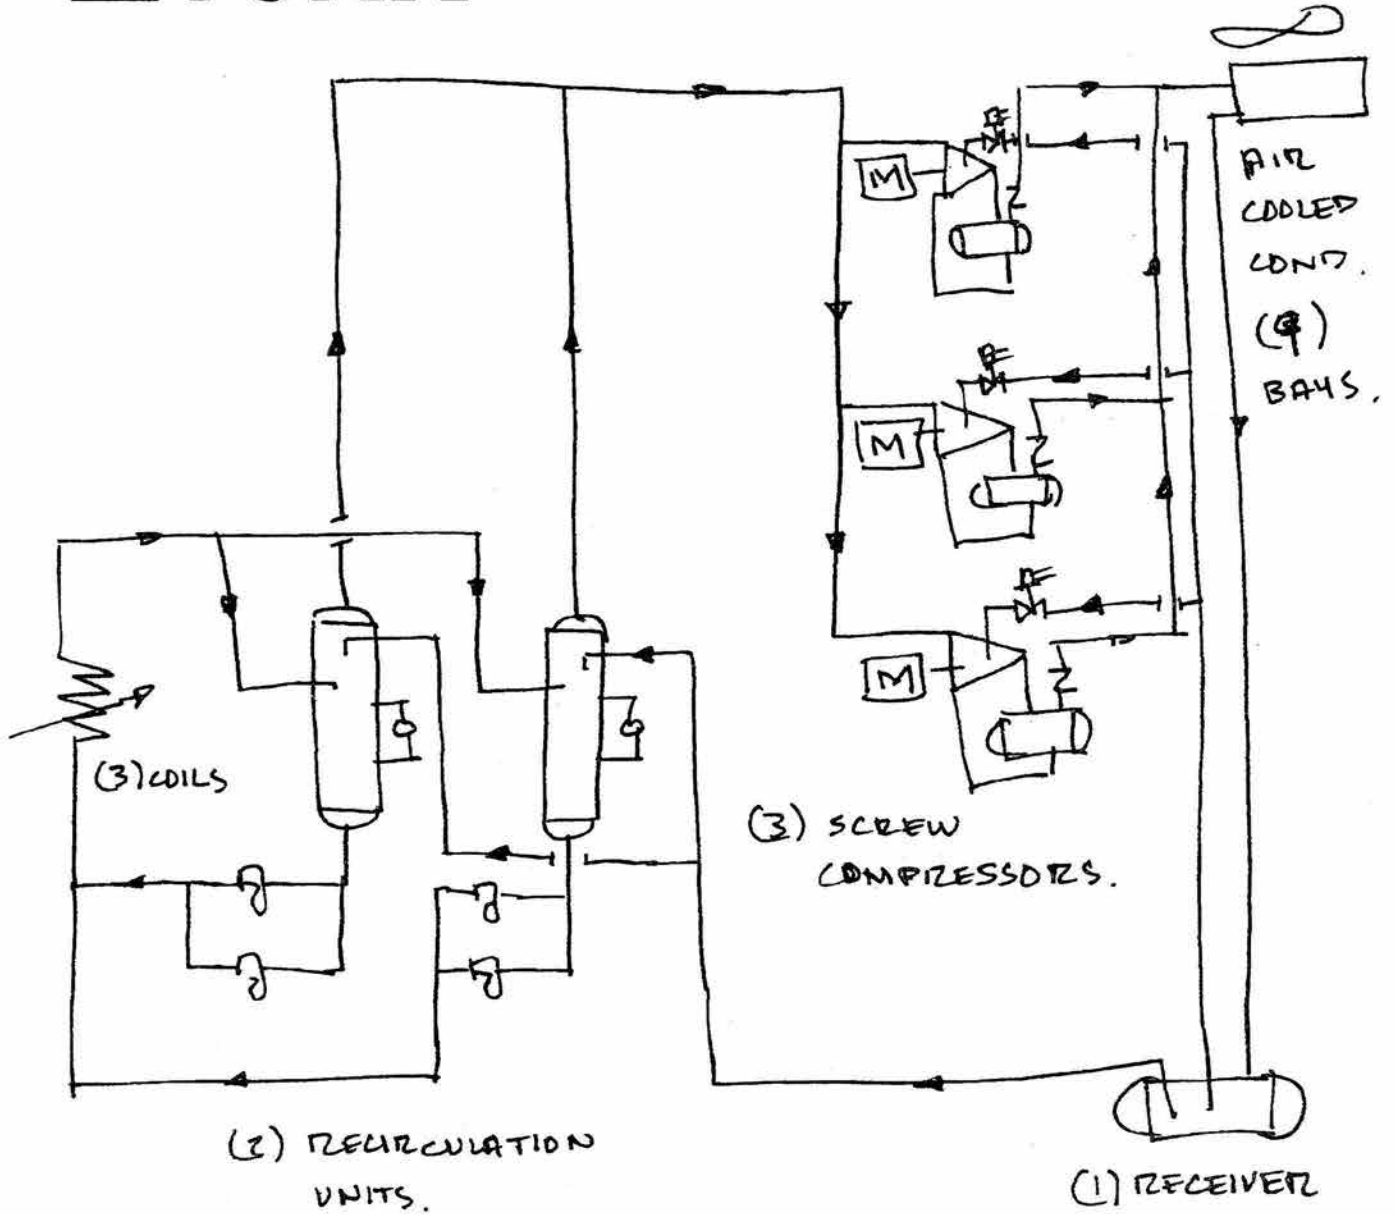 AIR
COOLED
COND.
BAYS.
M
M
M
(3) COILS
(3) SCREW
COMPRESSORS.
(2) RECIRCULATION
UNITS.
(1) RECEIVER